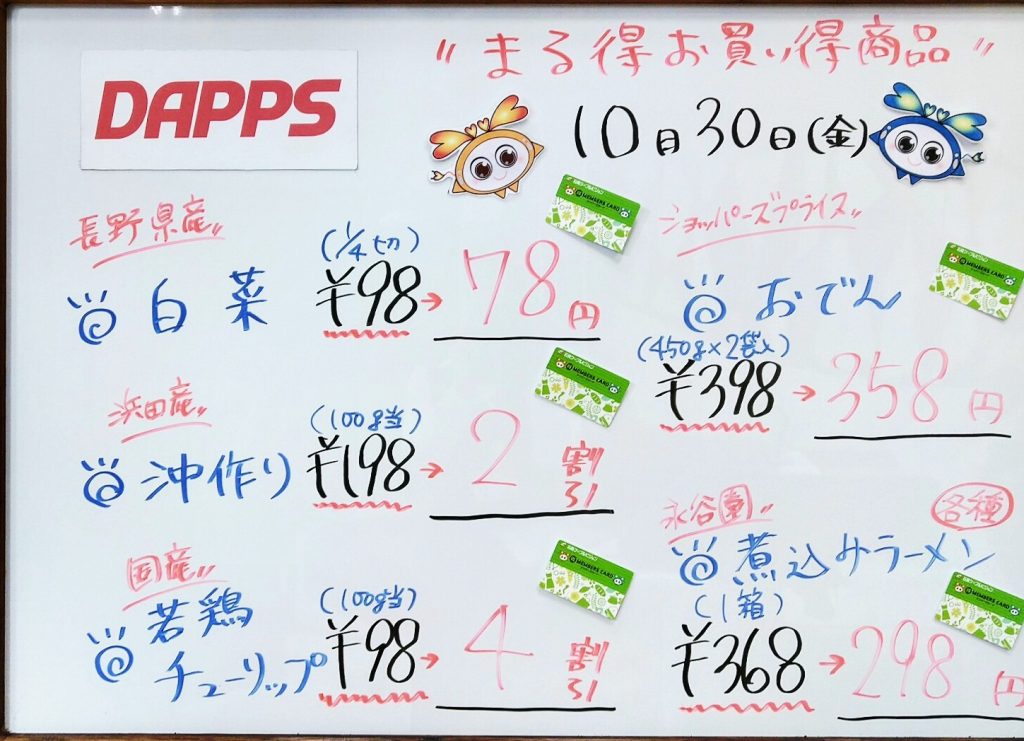 DAPPS
"まる得お買い得商品"
10月30日(金)
長野県産"
白菜
(1/4切)
¥98→78円
浜田産"
沖作り
(100g当)
¥198→2割引
国産"
若鶏
チューリップ
(100g当)
¥98→4割引
ショッパーズプライス"
おでん
(450g×2袋入)
¥398→358円
永谷園"
各種
煮込みラーメン
(1箱)
¥368→298円
MEMBERS CARD
MEMBERS CARD
MEMBERS CARD
MEMBERS CARD
MEMBERS CARD